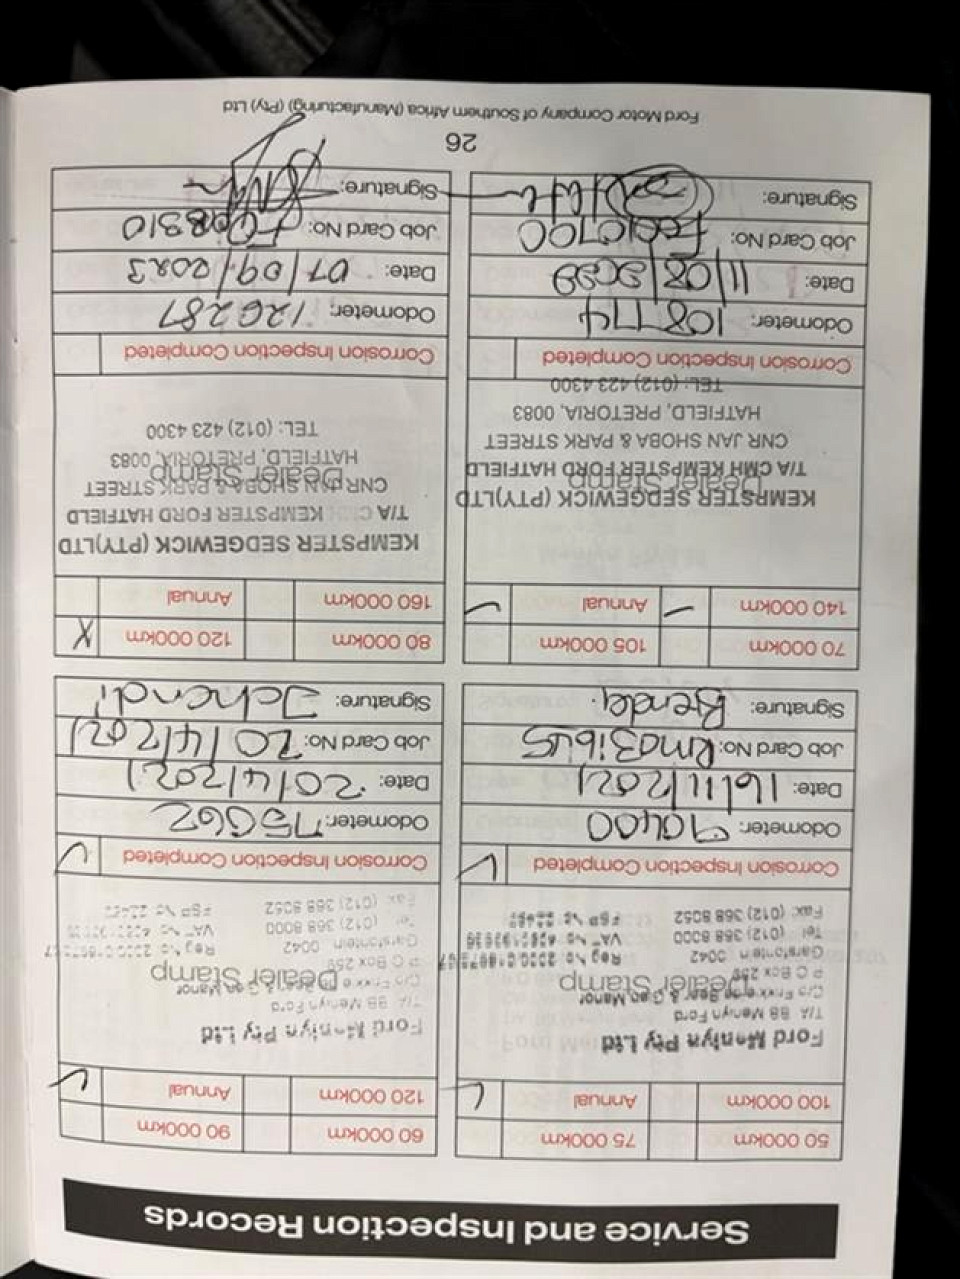 Service and Inspection Records
50 000km 75 000km
100 000km Annual
Ford Menlyn Pty Ltd
T/A BB Menlyn Ford
P O Box 259
Garsfontein 0042 Reg No
Tel (012) 368 8000
Fax (012) 368 8052
Dealer Stamp
Corrosion Inspection Completed
Odometer: 90400
Date: 16/11/2021
Job Card No:
Signature:
60 000km 90 000km
120 000km Annual
Ford Menlyn Pty Ltd
T/A BB Menlyn Ford
P O Box 259
Garsfontein 0042 Reg No
Tel (012) 368 8000
Fax (012) 368 8052
Dealer Stamp
Corrosion Inspection Completed
Odometer: 75662
Date: 20/4/2021
Job Card No: 20/4/2021
Signature:
70 000km 105 000km
140 000km Annual
KEMPSTER SEDGEWICK (PTY)LTD
Dealer Stamp
T/A CMH KEMPSTER FORD HATFIELD
CNR JAN SHOBA & PARK STREET
HATFIELD, PRETORIA, 0083
TEL: (012) 423 4300
Corrosion Inspection Completed
Odometer: 108774
Date: 11/08/2022
Job Card No:
Signature:
80 000km 120 000km X
160 000km Annual
KEMPSTER SEDGEWICK (PTY)LTD
T/A KEMPSTER FORD HATFIELD
CNR JAN SHOBA & PARK STREET
Dealer Stamp
HATFIELD, PRETORIA, 0083
TEL: (012) 423 4300
Corrosion Inspection Completed
Odometer: 126287
Date: 07/09/2023
Job Card No:
Signature:
26
Ford Motor Company of Southern Africa (Manufacturing) (Pty) Ltd